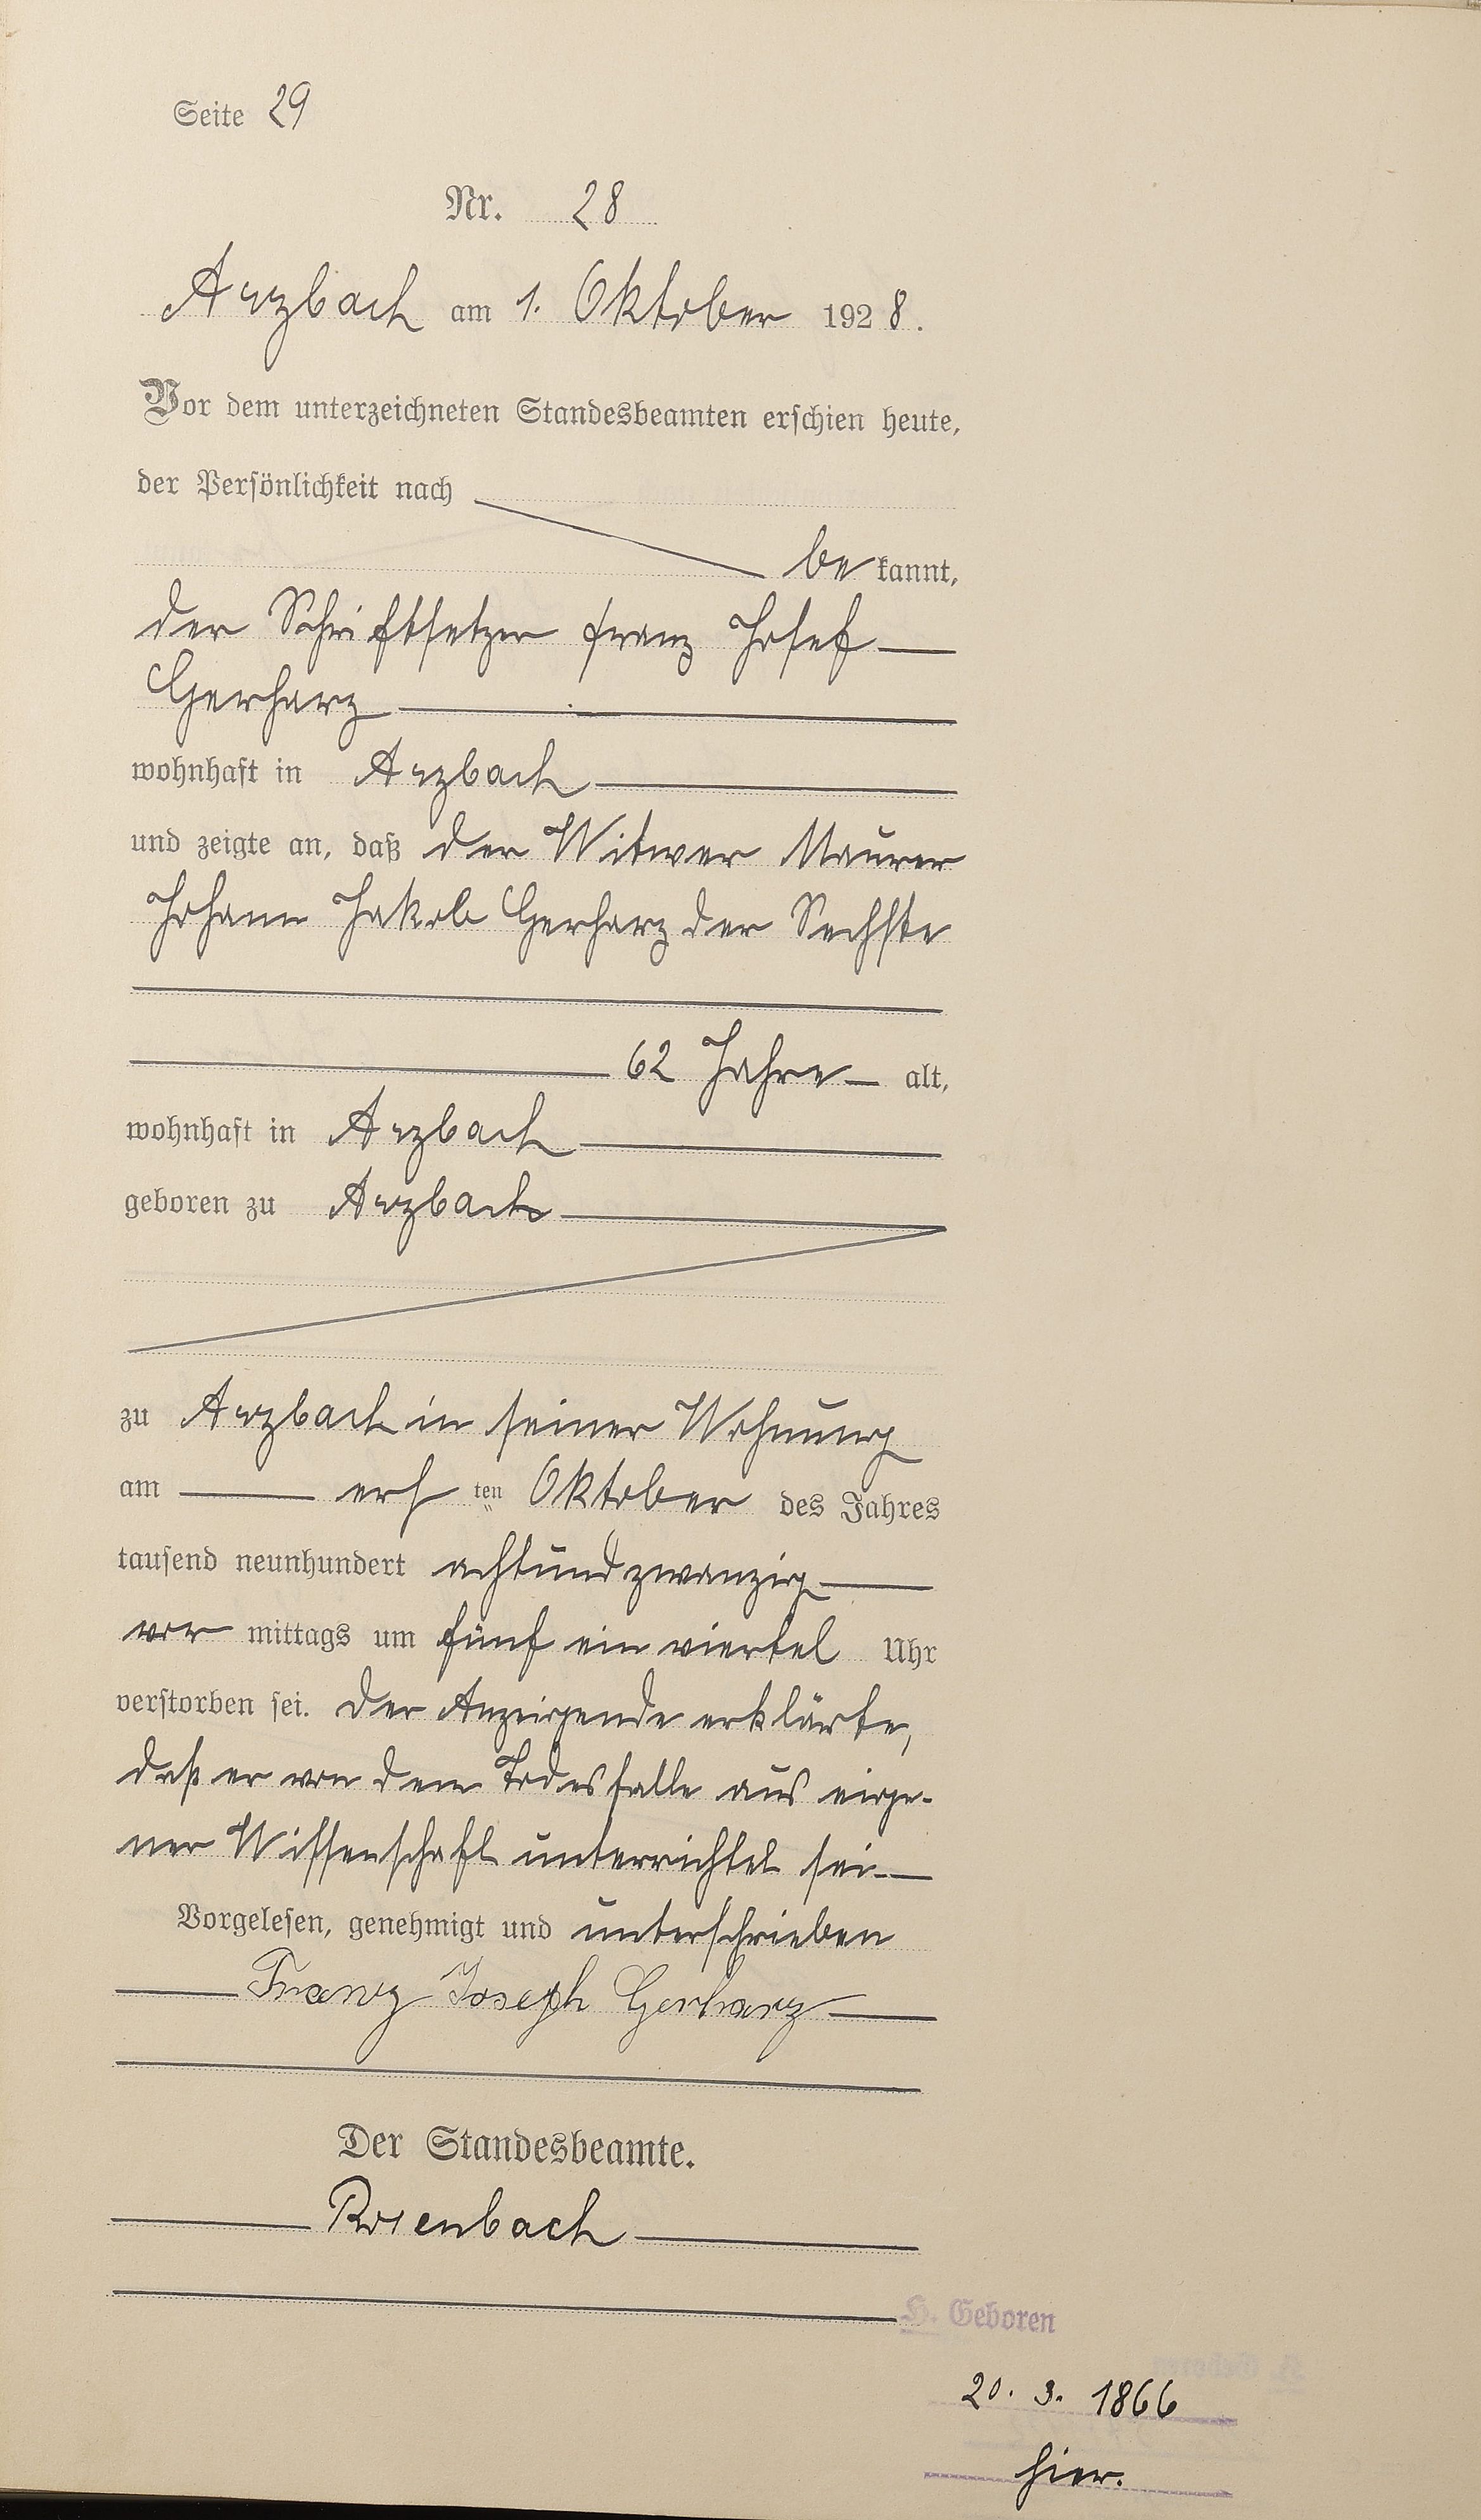 Seite 29
Nr. 28
Arzbach am 1. Oktober 1928.
Vor dem unterzeichneten Standesbeamten erschien heute,
der Persönlichkeit nach
bekannt,
der Schriftsetzer Franz Josef
Gerharz
wohnhaft in Arzbach
und zeigte an, daß der Witwer Maurer
Johann Jakob Gerharz der Sechste
62 Jahre alt,
wohnhaft in Arzbach
geboren zu Arzbach
zu Arzbach in seiner Wohnung
am ersten Oktober des Jahres
tausend neunhundert achtundzwanzig
vormittags um fünf ein viertel Uhr
verstorben sei. Der Anzeigende erklärte,
daß er von dem Todesfalle aus eige-
ner Wissenschaft unterrichtet sei.
Vorgelesen, genehmigt und unterschrieben
Franz Joseph Gerharz
Der Standesbeamte.
Rosenbach
H. Geboren
20. 3. 1866
hier.